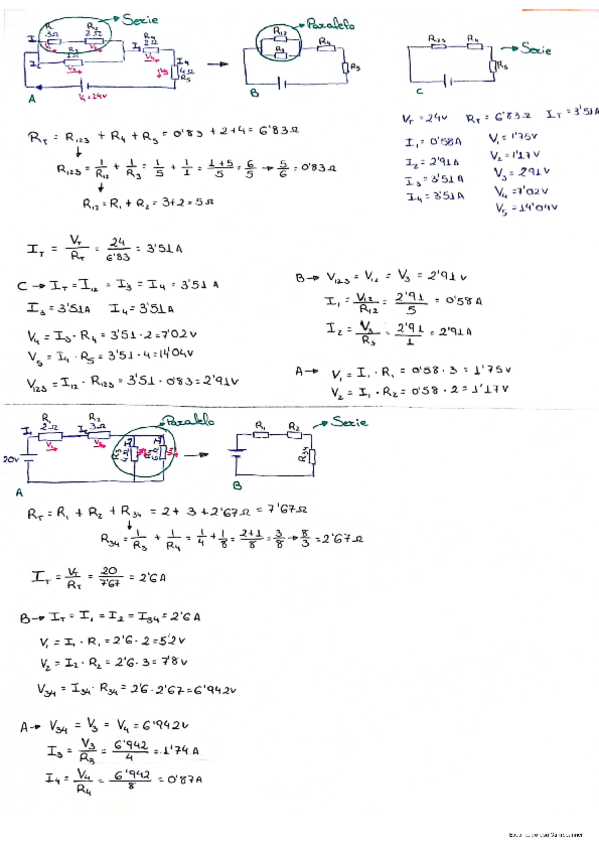 Serie
R₁ 3Ω R₂ 2Ω
R₄ 2Ω
4Ω R₅
V_T=24V
A
Paralelo
R₁₂
R₃
R₄
R₅
B
Serie
R₁₂₃ R₄
R₅
C
V_T=24V R_T=6'83Ω I_T=3'51A
I₁=0'58A V₁=1'75V
I₂=2'91A V₂=1'17V
I₃=3'51A V₃=2'91V
I₄=3'51A V₄=7'02V
V₅=14'04V
R_T = R₁₂₃ + R₄ + R₅ = 0'83+2+4 = 6'83Ω
R₁₂₃ = 1/R₁₂ + 1/R₃ = 1/5 + 1/1 = (1+5)/5 = 6/5 → 5/6 = 0'83Ω
R₁₂ = R₁ + R₂ = 3+2 = 5Ω
I_T = V_T/R_T = 24/6'83 = 3'51A
C → I_T = I₁₂ = I₃ = I₄ = 3'51A
I₃=3'51A I₄=3'51A
V₄ = I₃ · R₄ = 3'51 · 2 = 7'02V
V₅ = I₄ · R₅ = 3'51 · 4 = 14'04V
V₁₂₃ = I₁₂ · R₁₂₃ = 3'51 · 0'83 = 2'91V
B → V₁₂₃ = V₁₂ = V₃ = 2'91V
I₁ = V₁₂/R₁₂ = 2'91/5 = 0'58A
I₂ = V₃/R₃ = 2'91/1 = 2'91A
A → V₁ = I₁ · R₁ = 0'58 · 3 = 1'75V
V₂ = I₁ · R₂ = 0'58 · 2 = 1'17V
R₁ 2Ω R₂ 3Ω
20V
A
Paralelo
R₁ R₂
R₃₄
B
Serie
R_T = R₁ + R₂ + R₃₄ = 2+3+2'67Ω = 7'67Ω
R₃₄ = 1/R₃ + 1/R₄ = 1/4 + 1/8 = (2+1)/8 = 3/8 → 8/3 = 2'67Ω
I_T = V_T/R_T = 20/7'67 = 2'6A
B → I_T = I₁ = I₂ = I₃₄ = 2'6A
V₁ = I₁ · R₁ = 2'6 · 2 = 5'2V
V₂ = I₂ · R₂ = 2'6 · 3 = 7'8V
V₃₄ = I₃₄ · R₃₄ = 2'6 · 2'67 = 6'942V
A → V₃₄ = V₃ = V₄ = 6'942V
I₃ = V₃/R₃ = 6'942/4 = 1'74A
I₄ = V₄/R₄ = 6'942/8 = 0'87A